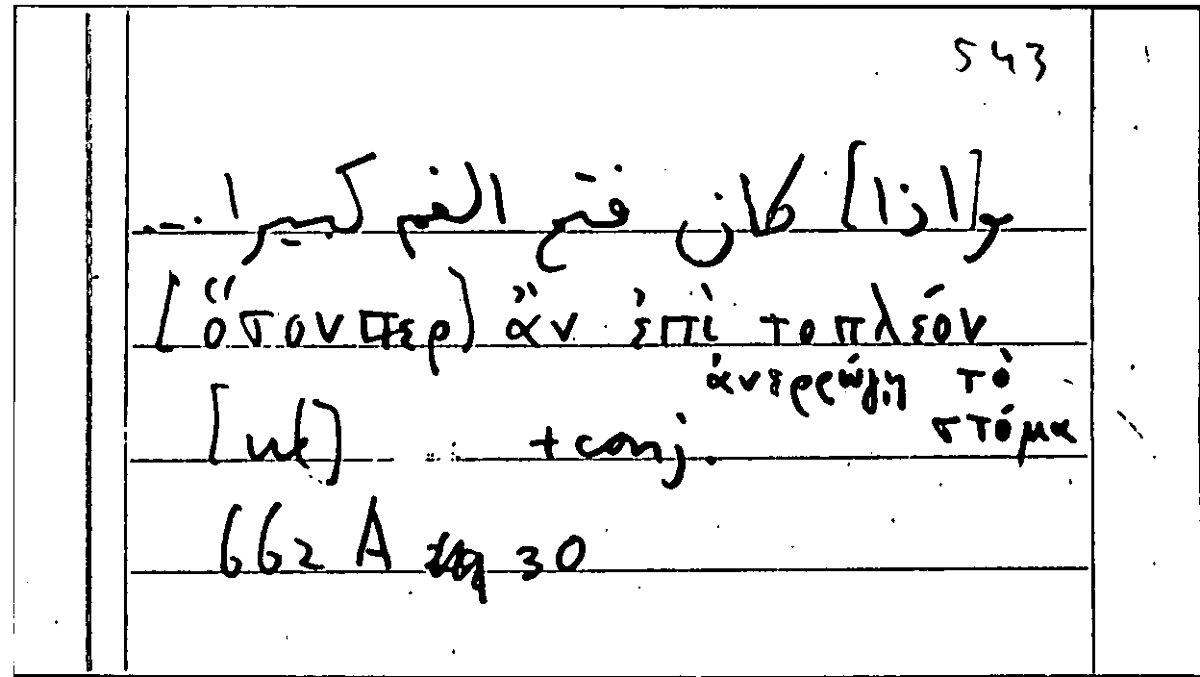 543
و[اذا] كان فتح الفم كبيرا...
[ὅσονπερ] ἂν ἐπὶ τοπλέον
ἀνερρώγῃ τὸ
στόμα
+conj.
662 A 30